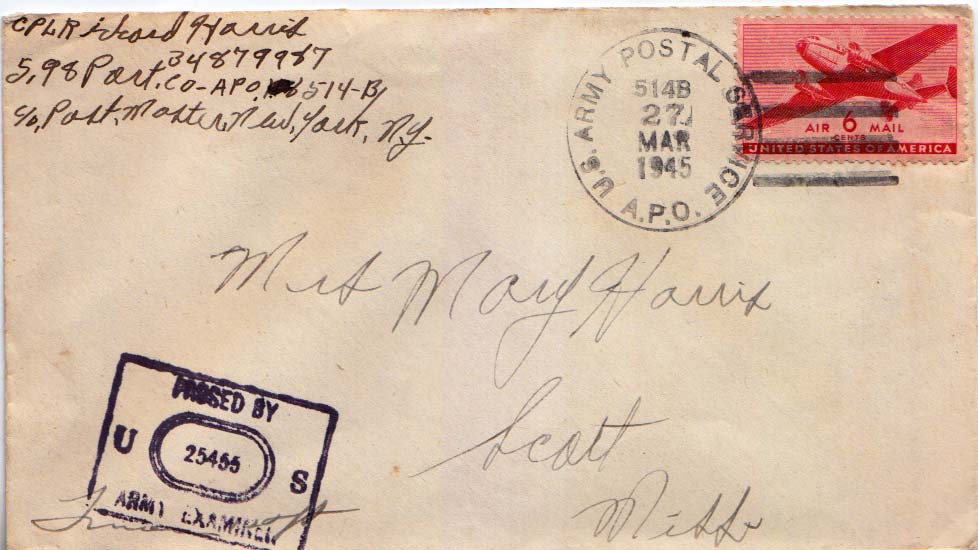 CPL Richard Harris
34879987
598 Port. Co-APO 514-B
c/o, Post, Master, New, York, N.Y.
U.S. ARMY POSTAL SERVICE
514B
27
MAR
1945
A.P.O.
AIR 6 MAIL
CENTS
UNITED STATES OF AMERICA
Mrs Mary Harris
Scott
Miss
PASSED BY
U 25455 S
ARMY EXAMINER